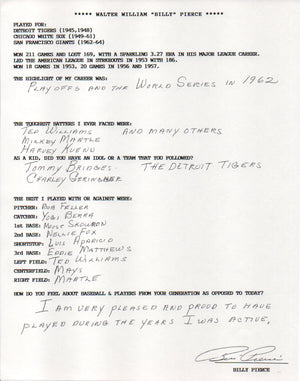 ***** WALTER WILLIAM "BILLY" PIERCE *****
PLAYED FOR:
DETROIT TIGERS (1945,1948)
CHICAGO WHITE SOX (1949-61)
SAN FRANCISCO GIANTS (1962-64)
WON 211 GAMES AND LOST 169, WITH A SPARKLING 3.27 ERA IN HIS MAJOR LEAGUE CAREER.
LED THE AMERICAN LEAGUE IN STRKEOUTS IN 1953 WITH 186.
WON 18 GAMES IN 1953, 20 GAMES IN 1956 AND 1957.
THE HIGHLIGHT OF MY CAREER WAS:
PLAYOFFS AND THE WORLD SERIES IN 1962
THE TOUGHEST BATTERS I EVER FACED WERE:
TED WILLIAMS AND MANY OTHERS
MICKEY MANTLE
HARVEY KUENN
AS A KID, DID YOU HAVE AN IDOL OR A TEAM THAT YOU FOLLOWED?
TOMMY BRIDGES THE DETROIT TIGERS
CHARLEY GERINGHER
THE BEST I PLAYED WITH OR AGAINST WERE:
PITCHER: BOB FELLER
CATCHER: YOGI BERRA
1st BASE: MOOSE SKOWRON
2nd BASE: NELLIE FOX
SHORTSTOP: LUIS APARICIO
3rd BASE: EDDIE MATTHEWS
LEFT FIELD: TED WILLIAMS
CENTERFIELD: MAYS
RIGHT FIELD: MANTLE
HOW DO YOU FEEL ABOUT BASEBALL & PLAYERS FROM YOUR GENERATION AS OPPOSED TO TODAY?
I AM VERY PLEASED AND PROUD TO HAVE
PLAYED DURING THE YEARS I WAS ACTIVE.
Billy Pierce
BILLY PIERCE